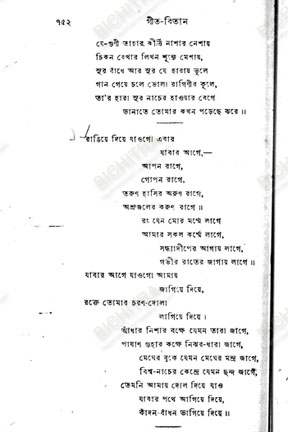 ৭৫২
গীত-বিতান
যে-গুণী তাহার কীর্ত্তি নাশার নেশায়
চিকন রেখার লিখন শূন্যে মেশায়,
সুর বাঁধে আর সুর যে হারায় ভুলে
গান গেয়ে চলে ভোলা রাগিণীর কূলে,
তা'র হারা সুর নাচের হাওয়ার বেগে
ডানাতে তোমার কখন পড়েছে ঝরে ॥
রাঙিয়ে দিয়ে যাওগো এবার
যাবার আগে,—
আপন রাগে,
গোপন রাগে,
তরুণ হাসির অরুণ রাগে,
অশ্রুজলের করুণ রাগে ॥
রং যেন মোর মর্ম্মে লাগে
আমার সকল কর্ম্মে লাগে,
সন্ধ্যাদীপের আগায় লাগে,
গভীর রাতের জাগায় লাগে ॥
যাবার আগে যাওগো আমায়
জাগিয়ে দিয়ে,
রক্তে তোমার চরণ-দোলা
লাগিয়ে দিয়ে।
আঁধার নিশার বক্ষে যেমন তারা জাগে,
পাষাণ গুহার কক্ষে নিঝর-ধারা জাগে,
মেঘের বুকে যেমন মেঘের মন্দ্র জাগে,
বিশ্ব-নাচের কেন্দ্রে যেমন ছন্দ জাগে,
তেমনি আমায় দোল দিয়ে যাও
যাবার পথে আগিয়ে দিয়ে,
কাঁদন-বাঁধন ভাগিয়ে দিয়ে ॥
BICHITRA